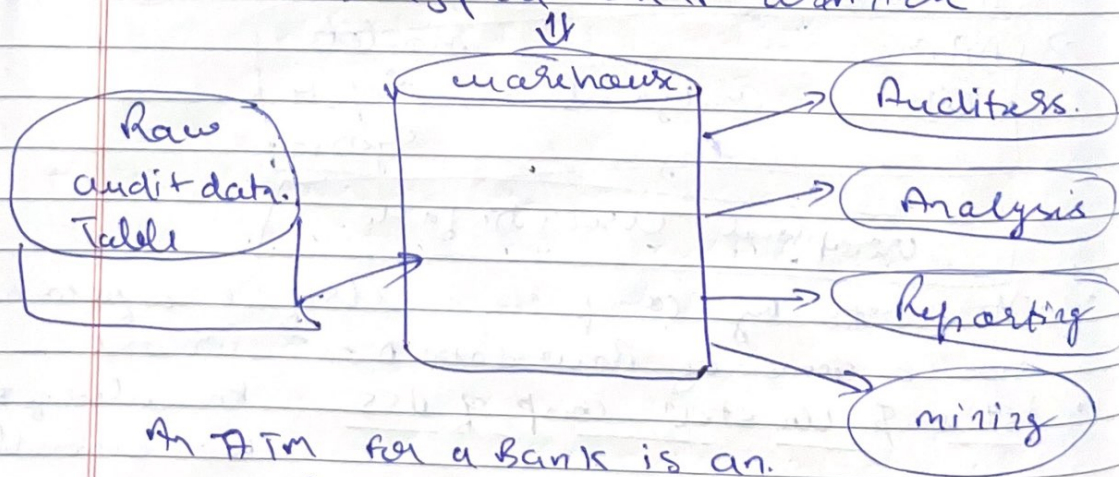 warehouse.
Raw
audit data.
Table
Auditers.
Analysis
Reporting
mining
An ATM for a Bank is an.